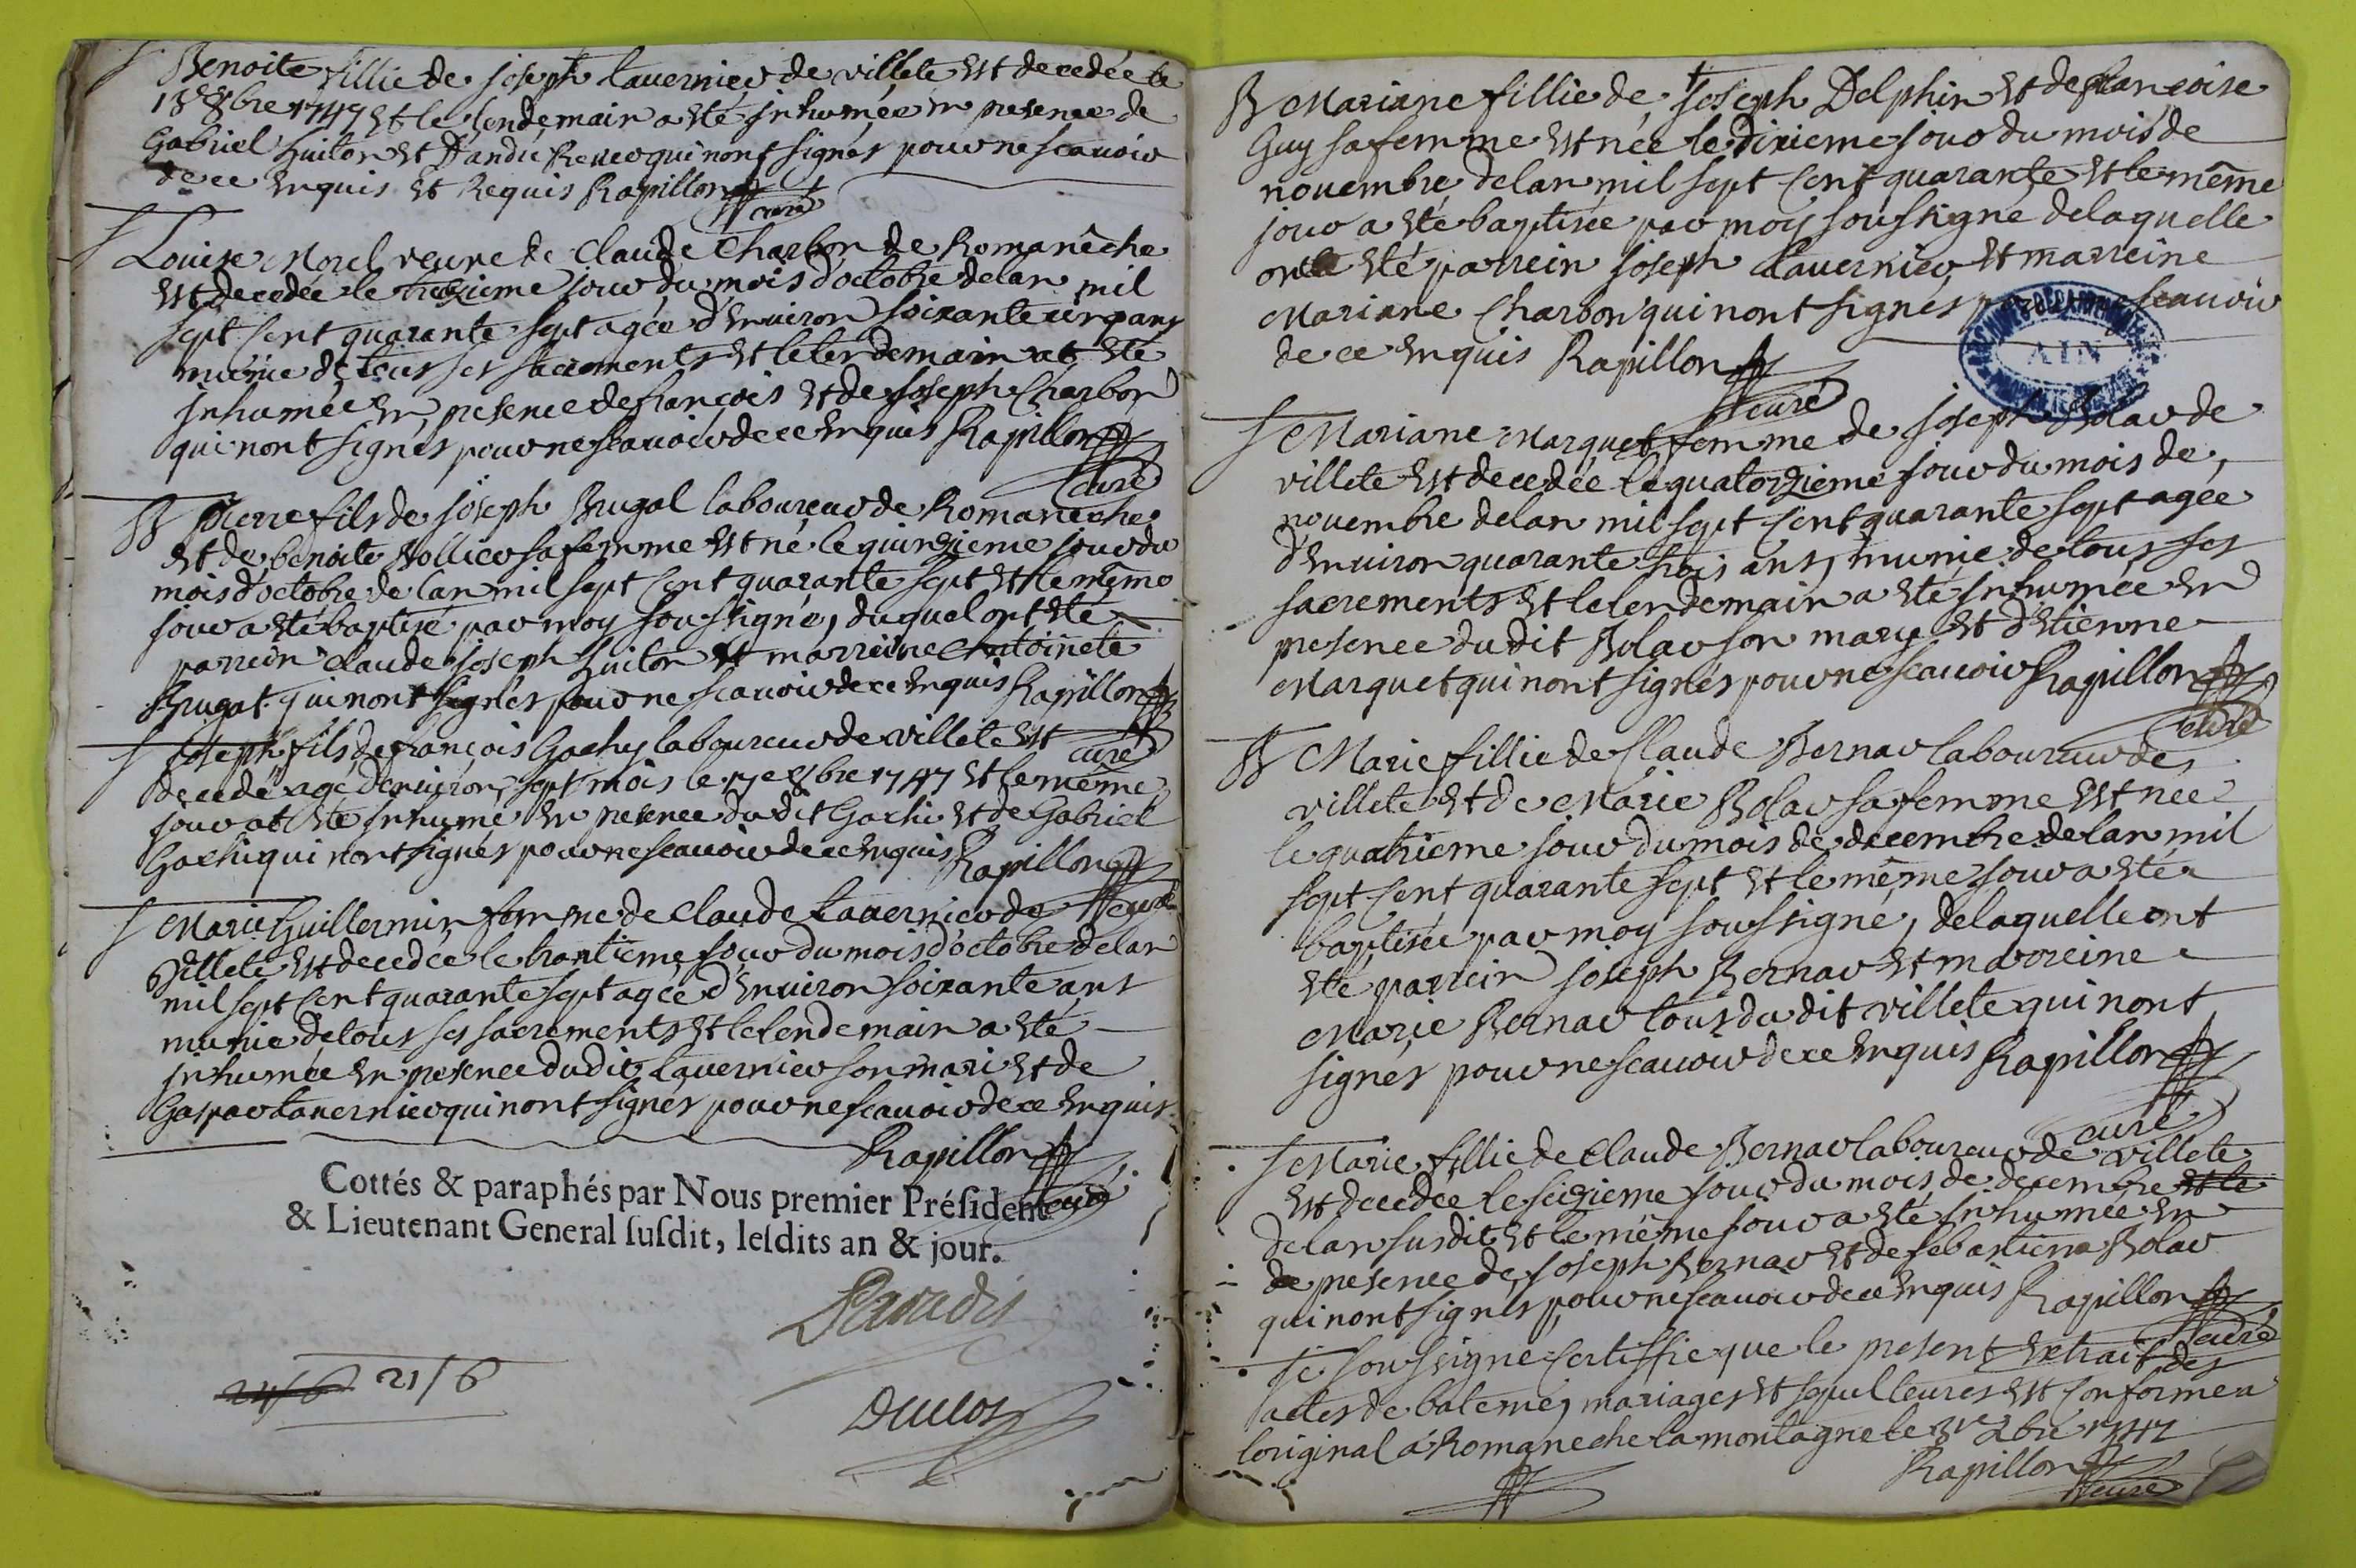 S Benoite fillie de joseph tavernier de villete est decedée le
18e 8bre 1747 et le lendemain a eté inhumée en presence de
Gabriel huiton et D'andré qui nont signés pour ne scavoir
de ce enquis et Requis Rapillon
curé
S Louise Morel veuve de Claude Charbon de Romanêche
est decedée le treizieme jour du mois d'octobre de lan mil
sept cent quarante sept agée d'environ soixante cinq ans
munie de tous ses sacrements et le lendemain at eté
inhumée en presence de francois et de Joseph Charbon
qui nont signés pour ne scavoir de ce enquis Rapillon
curé
B pierre fils de joseph Brugat laboureur de Romaneche
et de benoite Rollier sa femme est né le quinzieme jour du
mois d'octobre de lan mil sept cent quarante sept et le même
jour a eté baptisé par moy soussigné, duquel ont eté
parrein claude joseph huiton et marreine Antoinete
Brugat qui nont signés pour ne scavoir de ce enquis Rapillon
curé
S Joseph fils de françois Gachy laboureur de villete est
decedé agé d'environ sept mois le 17e 8bre 1747 et le même
jour at eté inhumé en presence du dit Gachi et de Gabriel
Gachi qui nont signés pour ne scavoir de ce enquis Rapillon
curé
S Marie Guillermin femme de Claude tavernier de
Villete est decedée le trantieme jour du mois d'octobre de lan
mil sept cent quarante sept agée d'environ soixante ans
munie de tous ses sacrements et le lendemain a eté
inhumée en presence du dit tavernier son mari et de
Gaspar tavernier qui nont signés pour ne scavoir de ce enquis
Rapillon
curé
Cottés & paraphés par Nous premier Préſident
& Lieutenant General ſuſdit, leſdits an & jour.
Paradis
24/6 21/6
Duclos
B Mariane fillie de joseph Delphin et de françoise
Guy sa femme est née le dixieme jour du mois de
novembre de lan mil sept cent quarante et le même
jour a eté baptisée par moy soussigné de laquelle
ont eté parrein joseph tavernier et marreine
Mariane Charbon qui nont signés pour ne scavoir
de ce enquis Rapillon
curé
AIN
S Mariane Marquet femme de joseph Bolar de
villete est decedée le quatorzieme jour du mois de
novembre de lan mil sept cent quarante sept agée
d'environ quarante trois ans, munie de tous ses
sacrements et le lendemain a eté inhumée en
presence du dit Bolar son mary et d'etienne
Marquet qui nont signés pour ne scavoir Rapillon
curé
B Marie fillie de Claude Bernar laboureur de
villete et de Marie Bolar sa femme est née
le quatrieme jour du mois de decembre de lan mil
sept cent quarante sept et le même jour a eté
baptisée par moy soussigné, de laquelle ont
eté parrein joseph Bernar et marreine
Marie Bernar tous du dit villete qui nont
signés pour ne scavoir de ce enquis Rapillon
curé
S Marie fillie de Claude Bernar laboureur de villete
est decedée le seizieme jour du mois de decembre et le
de lan susdit et le même jour a eté inhumée en
de presence de joseph Bernar et de sebastiene Bolar
qui nont signés pour ne scavoir de ce enquis Rapillon
curé
Je soussigné certiffie que le present extrait des
actes de bateme, mariages et sepultures est conforme a
loriginal a Romaneche la montagne le 31e Xbre 1747
Rapillon
curé